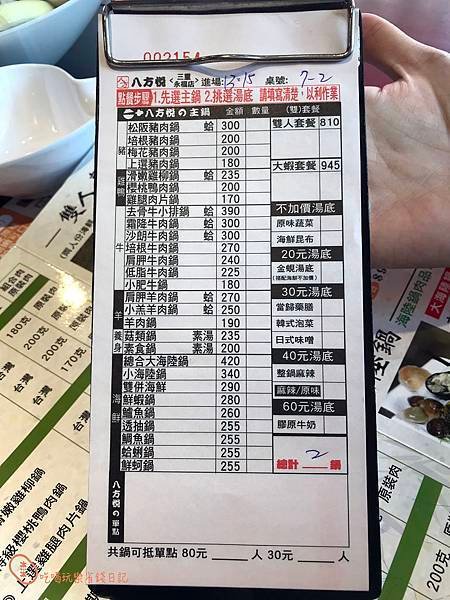 002154
八方悅 <三重永福店> 進場:13:15 桌號: 7-2
點餐步驟 1.先選主鍋 2.挑選湯底 請填寫清楚,以利作業
八方悅の主鍋 金額 數量 (雙)套餐
豬
松阪豬肉鍋 蛤 300
培根豬肉鍋 200
梅花豬肉鍋 200
上選豬肉鍋 180
雞鴨
滑嫩雞柳鍋 蛤 235
櫻桃鴨肉鍋 200
雞腿肉片鍋 170
牛
去骨牛小排鍋 蛤 390
霜降牛肉鍋 蛤 200
沙朗牛肉鍋 蛤 300
培根牛肉鍋 270
肩胛牛肉鍋 240
低脂牛肉鍋 225
小肥牛鍋 180
羊
肩胛羊肉鍋 蛤 270
小羔羊肉鍋 蛤 250
羊肉鍋 190
養身
菇類鍋 素湯 235
素食鍋 素湯 200
海鮮
總合大海陸鍋 420
小海陸鍋 340
雙併海鮮 290
鮮蝦鍋 280
鱸魚鍋 260
透抽鍋 255
鯛魚鍋 255
蛤蜊鍋 255
鮮蚵鍋 255
雙人套餐 810
大蝦套餐 945
不加價湯底
原味蔬菜
海鮮昆布
20元湯底
金蜆湯底
(搭配海鮮不加價)
30元湯底
當歸藥膳
韓式泡菜
日式味噌
40元湯底
整鍋麻辣
麻辣/原味
60元湯底
膠原牛奶
總計 2 鍋
八方悅の單點
共鍋可抵單點 80元 人 30元 人
雙人
180克
200克
170克
台灣
滑嫩雞柳鍋
特級櫻桃鴨肉鍋
上選雞腿肉片鍋
海陸鍋肉品
原裝肉
200克
吃喝玩樂省錢日記